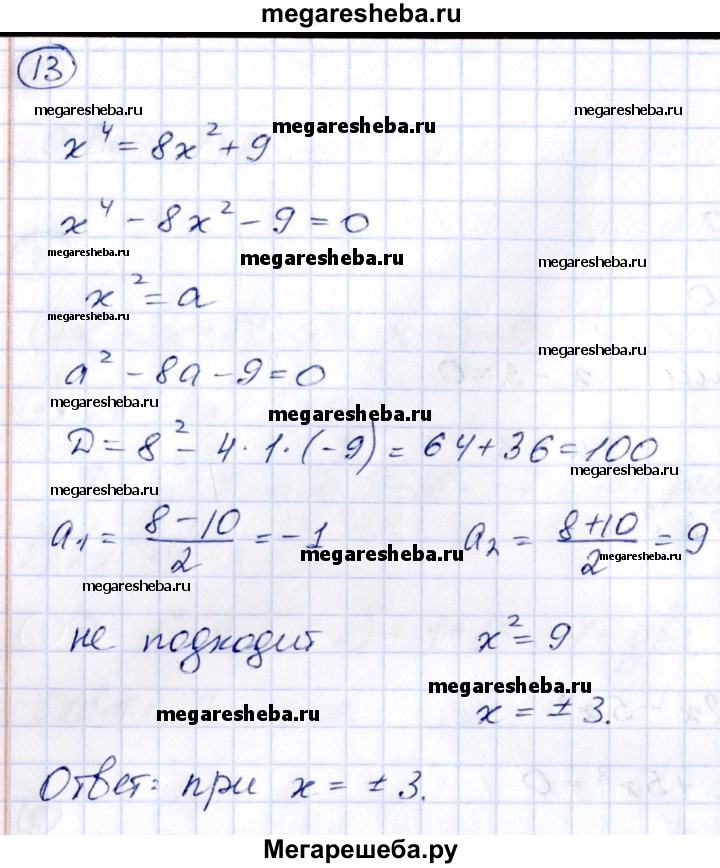 megaresheba.ru
13
megaresheba.ru megaresheba.ru
x⁴ = 8x² + 9 megaresheba.ru
x⁴ - 8x² - 9 = 0
megaresheba.ru megaresheba.ru megaresheba.ru
x² = a
megaresheba.ru
megaresheba.ru
a² - 8a - 9 = 0
megaresheba.ru megaresheba.ru
D = 8² - 4 · 1 · (-9) = 64 + 36 = 100
megaresheba.ru
megaresheba.ru
a₁ = (8 - 10)/2 = -1 a₂ = (8 + 10)/2 = 9
megaresheba.ru megaresheba.ru megaresheba.ru
megaresheba.ru
не подходит x² = 9
megaresheba.ru
megaresheba.ru x = ± 3.
Ответ: при x = ± 3.
Мегарешеба.ру